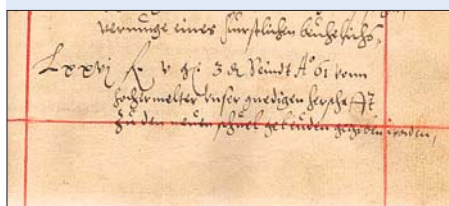 vernunge eines furstlichen beuhelichs,
Lxxvi v 3 Seindt A° 61 vonn
hochermelter unser gnedigen herschafft
zu den neuen schuel gebeuden gegeben worden,